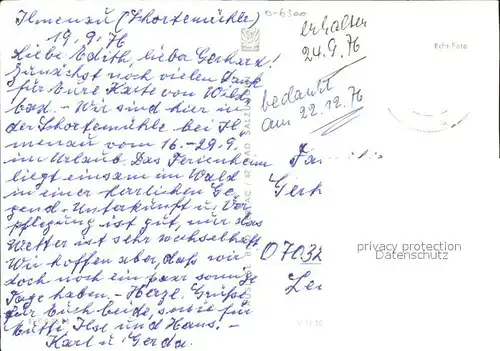 Ilmenau (Schortemühle)
19.9.76
Liebe Edith, lieber Gerhard!
Zunächst noch vielen Dank
für Eure Karte von Wild-
bad. - Wir sind hier in
der Schortemühle bei Il-
menau vom 16.-29.9.
im Urlaub. Das Ferienheim
liegt einsam im Wald
in einer herrlichen Ge-
gend. Unterkunft u. Ver-
pflegung ist gut, nur das
Wetter ist sehr wechselhaft
Wir hoffen aber, daß wir
doch noch ein paar sonnige
Tage haben. - Herzl. Grüße
für Euch beide, sowie für
Mutti, Ilse und Hans. -
Karl u. Gerda.
erhalten
24.9.76
bedankt
am 22.12.76
Echt Foto
BAD SALZ
Fa
Gerh
07032
Le
privacy protection
Datenschutz